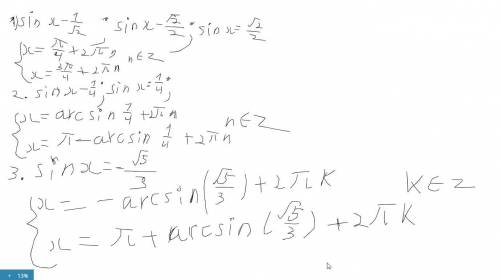 1) sin x - 1/√2 ; sin x - √2/2 ; sin x = √2/2
{ x = π/4 + 2πn
{ x = 3π/4 + 2πn n∈Z
2. sin x - 1/4 ; sin x = 1/4 ;
{ x = arcsin 1/4 + 2πn
{ x = π - arcsin 1/4 + 2πn n∈Z
3. sin x = - √5/3
{ x = - arcsin(√5/3) + 2πk k∈z
{ x = π + arcsin(√5/3) + 2πk
13%